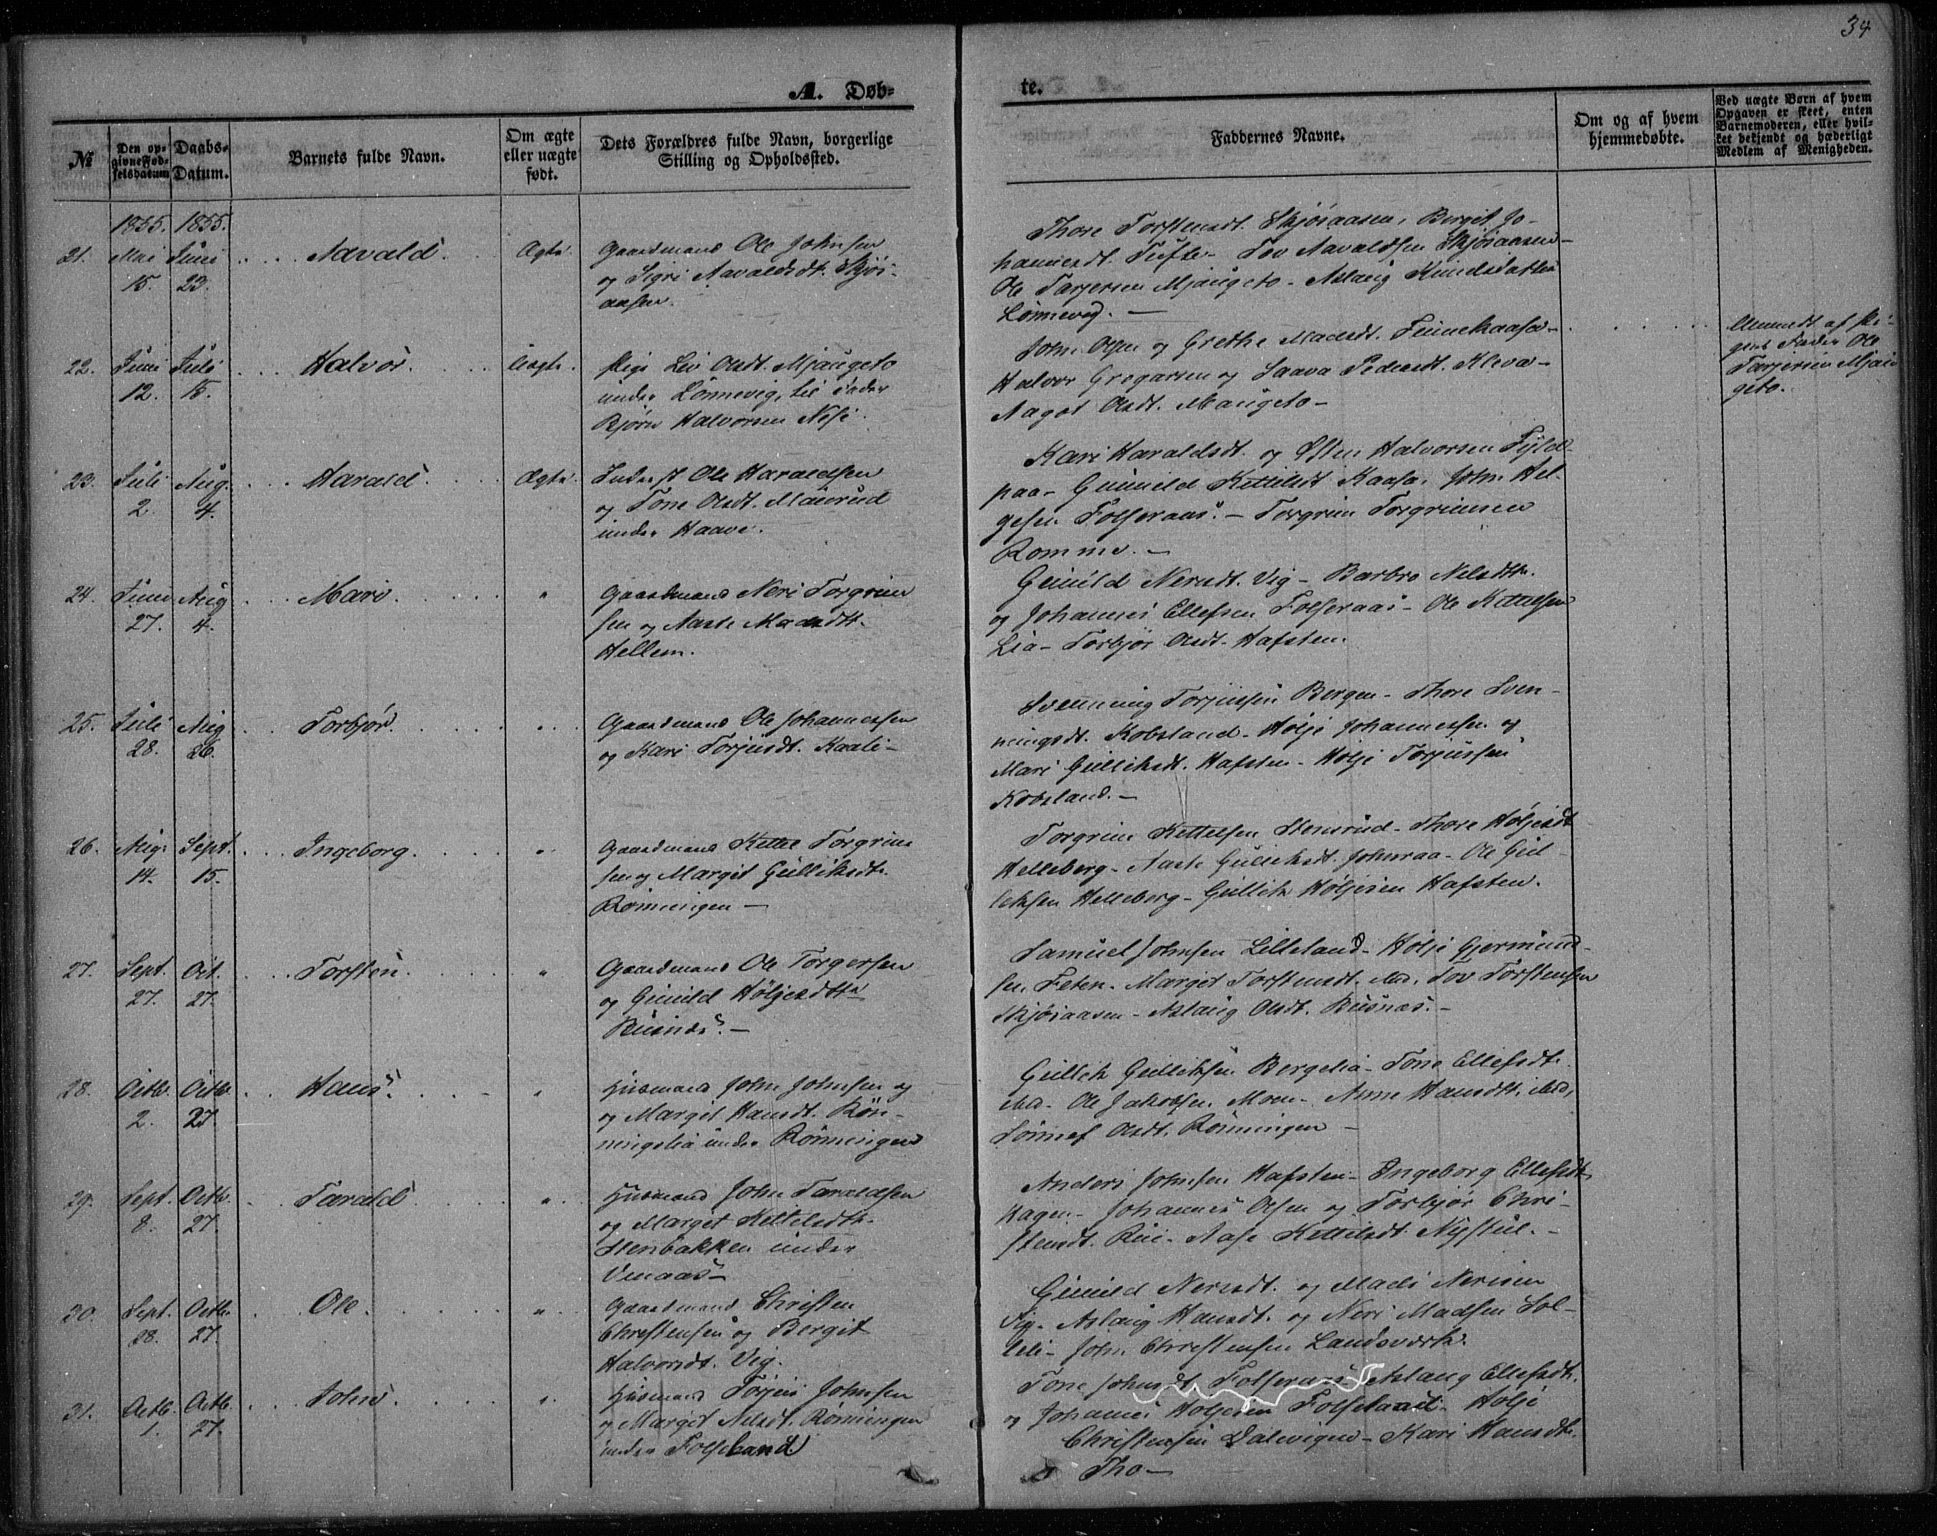 34
A. Døb-
te.
№
Den op-
givne Fød-
selsdatum
Daabs-
Datum.
Barnets fulde Navn.
Om ægte
eller uægte
født.
Dets Forældres fulde Navn, borgerlige
Stilling og Opholdssted.
Faddernes Navne.
Om og af hvem
hjemmedøbte.
Ved uægte Børn af hvem
Opgaven er skeet, enten
Barnemoderen, eller hvil-
ket bekjendt og hæderligt
Medlem af Menigheden.
1855. 1855.
21. Mai 15. Juni 23. Aavald. Ægte
Gaardmand Ole Johnsen
og Sigri Aavaldsdt. Skjøs-
aasen.
Thore Torstensdt. Skjøsaasen, Bergit Jo-
hannesdt. Tufte - Tov Aavaldsen Skjøsaasen -
Ole Tarjersen Mjaugeto - Aslaug Knudsdatter
Lønnevig. -
22. Juni 12. Juli 15. Halvor. Uægte.
Pige Liv Olsdt. Mjaugeto
under Lønnevig, til Fader
Bjørn Halvorsen Nese.
John Olsen og Grethe Madsdt. Finnekaasa -
Halvor Gregarsen og Saava Pedersdt. Kleva -
Aagot Olsdt. Maugeto -
Anmeldt af Pi-
gens Fader Ole
Tarjersen Mjau-
geto.
23. Juli 2. Aug. 4. Harald. Ægte.
Inderst Ole Haraldsen
og Tone Olsdt. Maurud
under Haave.
Kari Haraldsdt. og Østen Halvorsen Fyld-
paa - Gunild Kittilsdt Kaasa, John Hel-
gesen Folseraas. - Torgrim Torgrimsen
Romme. -
24. Juni 27. Aug 4. Mari. "
Gaardmand Neri Torgrim
sen og Aaste Madsdtr.
Hellem.
Gunild Nersdt. Vig - Barbro Nilsdtr.
og Johannes Ellefsen Folseraas - Ole Kittelsen
Lia - Torbjør Olsdt. Hafsten.
25. Juli 28. Aug 26. Torbjør. "
Gaardmand Ole Johannessen
og Kari Torjusdt. Kaali -
Svenning Torjussen Bergen - Thore Sven-
ningsdt. Kobsland - Høljе Johannessen og
Mari Gulliksdt. Hafsten - Hølje Torjussen
Kobsland. -
26. Aug. 14. Sept. 15. Ingeborg. "
Gaardmand Kittil Torgrim
sen og Margit Gulliksdt.
Rønningen -
Torgrim Kittelsen Stensrud - Thore Høljesdt
Helleberg - Aaste Gulliksdt. Johnraa - Ole Gul-
liksen Helleberg - Gullik Høljesen Hafsten.
27. Sept. 27. Oct. 27. Torsten. "
Gaardmand Ole Torgersen
og Gunild Høljesdtr
Busnes. -
Samuel Johnsen Lilleland - Hølje Gjermund-
sen Feten - Marget Torstensdt. ibid, Tov Torstensen
Skjøsaasen - Aslaug Olsdt. Busnæs. -
28. Octbr. 2. Octbr 27. Hans. "
Husmand John Johnsen og
og Margit Hansdt. Røn-
ningslia under Rønningen
Gullik Gulliksen Bergelia - Tone Ellefsdt.
ibid - Ole Jakobsen Moen - Anne Hansdtr. ibid,
Sønnef Olsdt. Rønningen -
29. Sept. 8. Octbr. 27. Tarald. "
Husmand John Taraldsen
og Marget Kittelsdtr.
Stenbakken under
Vinaas -
Anders Johnsen Hafsten - Ingeborg Ellefsdt.
Hagen - Johannes Olsen og Torbjør Chri-
stensdt. Rui - Aase Kittilsdt Nystul. -
30. Sept. 28. Octbr. 27. Ole. "
Gaardmand Christen
Christensen og Bergit
Halvorsdt. Vig.
Gunild Nersdt. og Mads Nerisen
Vig - Aslaug Hansdt. og Neri Madsen Sol-
lili - John Christensen Landsværk.
31. Octb. 1. Octb. 27. John. "
Husmand Torjus Johnsen
og Margit Nilsdt. Rønningen
under Folseland
Tone Johnsdt. Folseraas - Aslaug Ellefsdt.
og Johannes Høljesen Folseland - Hølje
Christensen Dalevigen - Kari Hansdtr.
Tho -